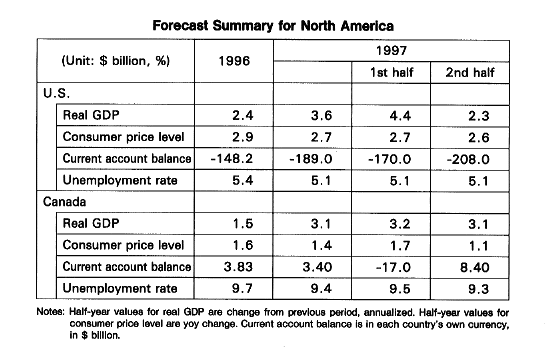 Forecast Summary for North America
(Unit: $ billion, %) 1996 1997
1st half 2nd half
U.S.
Real GDP 2.4 3.6 4.4 2.3
Consumer price level 2.9 2.7 2.7 2.6
Current account balance -148.2 -189.0 -170.0 -208.0
Unemployment rate 5.4 5.1 5.1 5.1
Canada
Real GDP 1.5 3.1 3.2 3.1
Consumer price level 1.6 1.4 1.7 1.1
Current account balance 3.83 3.40 -17.0 8.40
Unemployment rate 9.7 9.4 9.5 9.3
Notes: Half-year values for real GDP are change from previous period, annualized. Half-year values for
consumer price level are yoy change. Current account balance is in each country's own currency,
in $ billion.